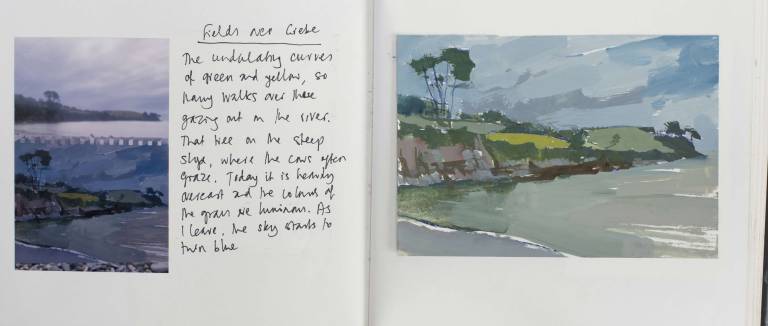 Fields near Crebe
The undulating curves
of green and yellow, so
many walks over these
gazing out on the river.
That tree on the steep
slope, where the cows often
graze. Today it is heavily
overcast and the colours of
the grass are luminous. As
I leave, the sky starts to
turn blue